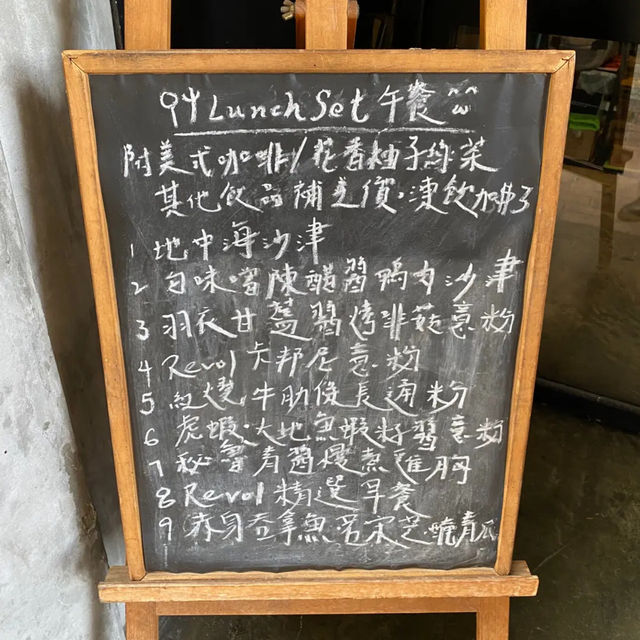 Lunch Set 午餐
附美式咖啡/花香柚子綠茶
其他飲品補差價,凍飲加$3
1 地中海沙津
2 陳醋醬鴨肉沙津
3 羽衣甘藍醬烤菇意粉
4 Revol 卡邦尼意粉
5 紅燒牛肋條長通粉
6 虎蝦,大地魚蝦籽醬意粉
7 秘魯青醬慢煮雞胸
8 Revol 精選早餐
9 吞拿魚芝青瓜